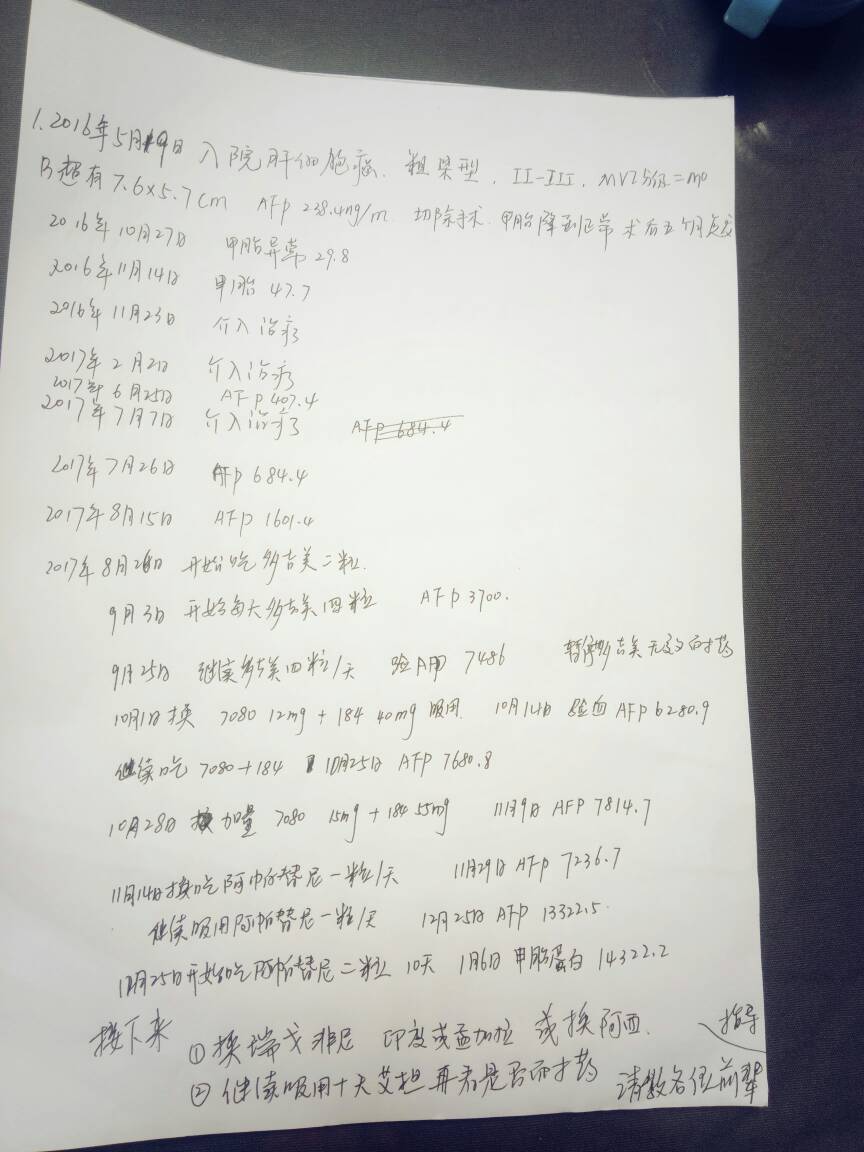 1.2016年5月19日 入院肝细胞癌、粗梁型，II-III，MVI分级=m0
B超有7.6×5.7cm AFP 238.4ng/m. 切除手术. 甲胎降到正常 术后五个月复发
2016年10月27日 甲胎异常 29.8
2016年11月14日 甲胎 47.7
2016年11月23日 介入治疗
2017年2月2日 介入治疗
2017年6月25日 AFP 407.4
2017年7月7日 介入治疗 AFP 684.4
2017年7月26日 AFP 684.4
2017年8月15日 AFP 1601.4
2017年8月26日 开始吃多吉美二粒.
9月3日 开始每天多吉美四粒 AFP 3700.
9月25日 继续多吉美四粒/天 验AFP 7486 暂停多吉美无效耐药
10月1日换 7080 12mg + 184 40mg 服用. 10月14日 验血 AFP 6280.9
继续吃 7080+184 10月25日 AFP 7680.8
10月28日 加量 7080 15mg + 184 55mg 11月9日 AFP 7814.7
11月14日换吃阿帕替尼一粒/天 11月29日 AFP 7236.7
继续服用阿帕替尼一粒/天 12月25日 AFP 13322.5.
12月25日开始吃阿帕替尼二粒 10天 1月6日 甲胎蛋白 14322.2
接下来 ①换瑞戈非尼 印度或孟加拉 或换阿西. 指导
②继续服用十天艾坦再看是否耐药 请教各位前辈